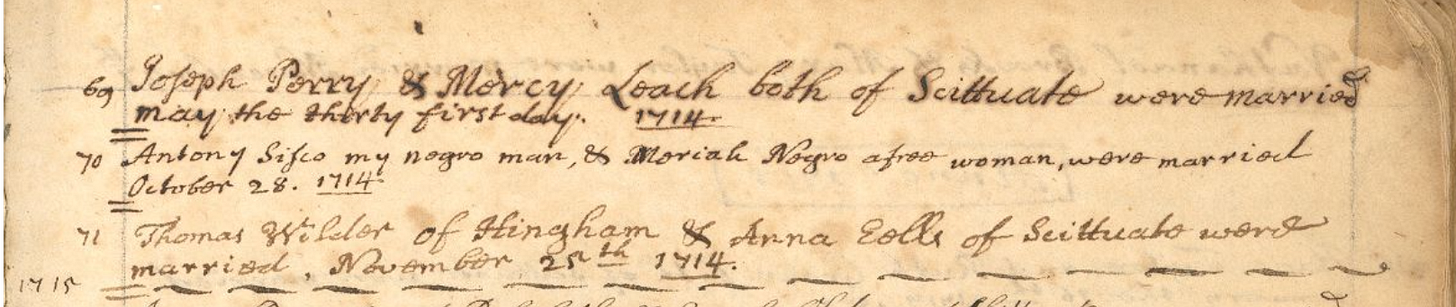 69 Joseph Perry & Mercy Leach both of Scittuate were married
may the thirty first day. 1714.
70 Antony Sisco my negro man, & Meriah Negro a free woman, were married
October 28. 1714
71 Thomas Wilder of Hingham & Anna Eells of Scittuate were
married, November 25th 1714.
1715